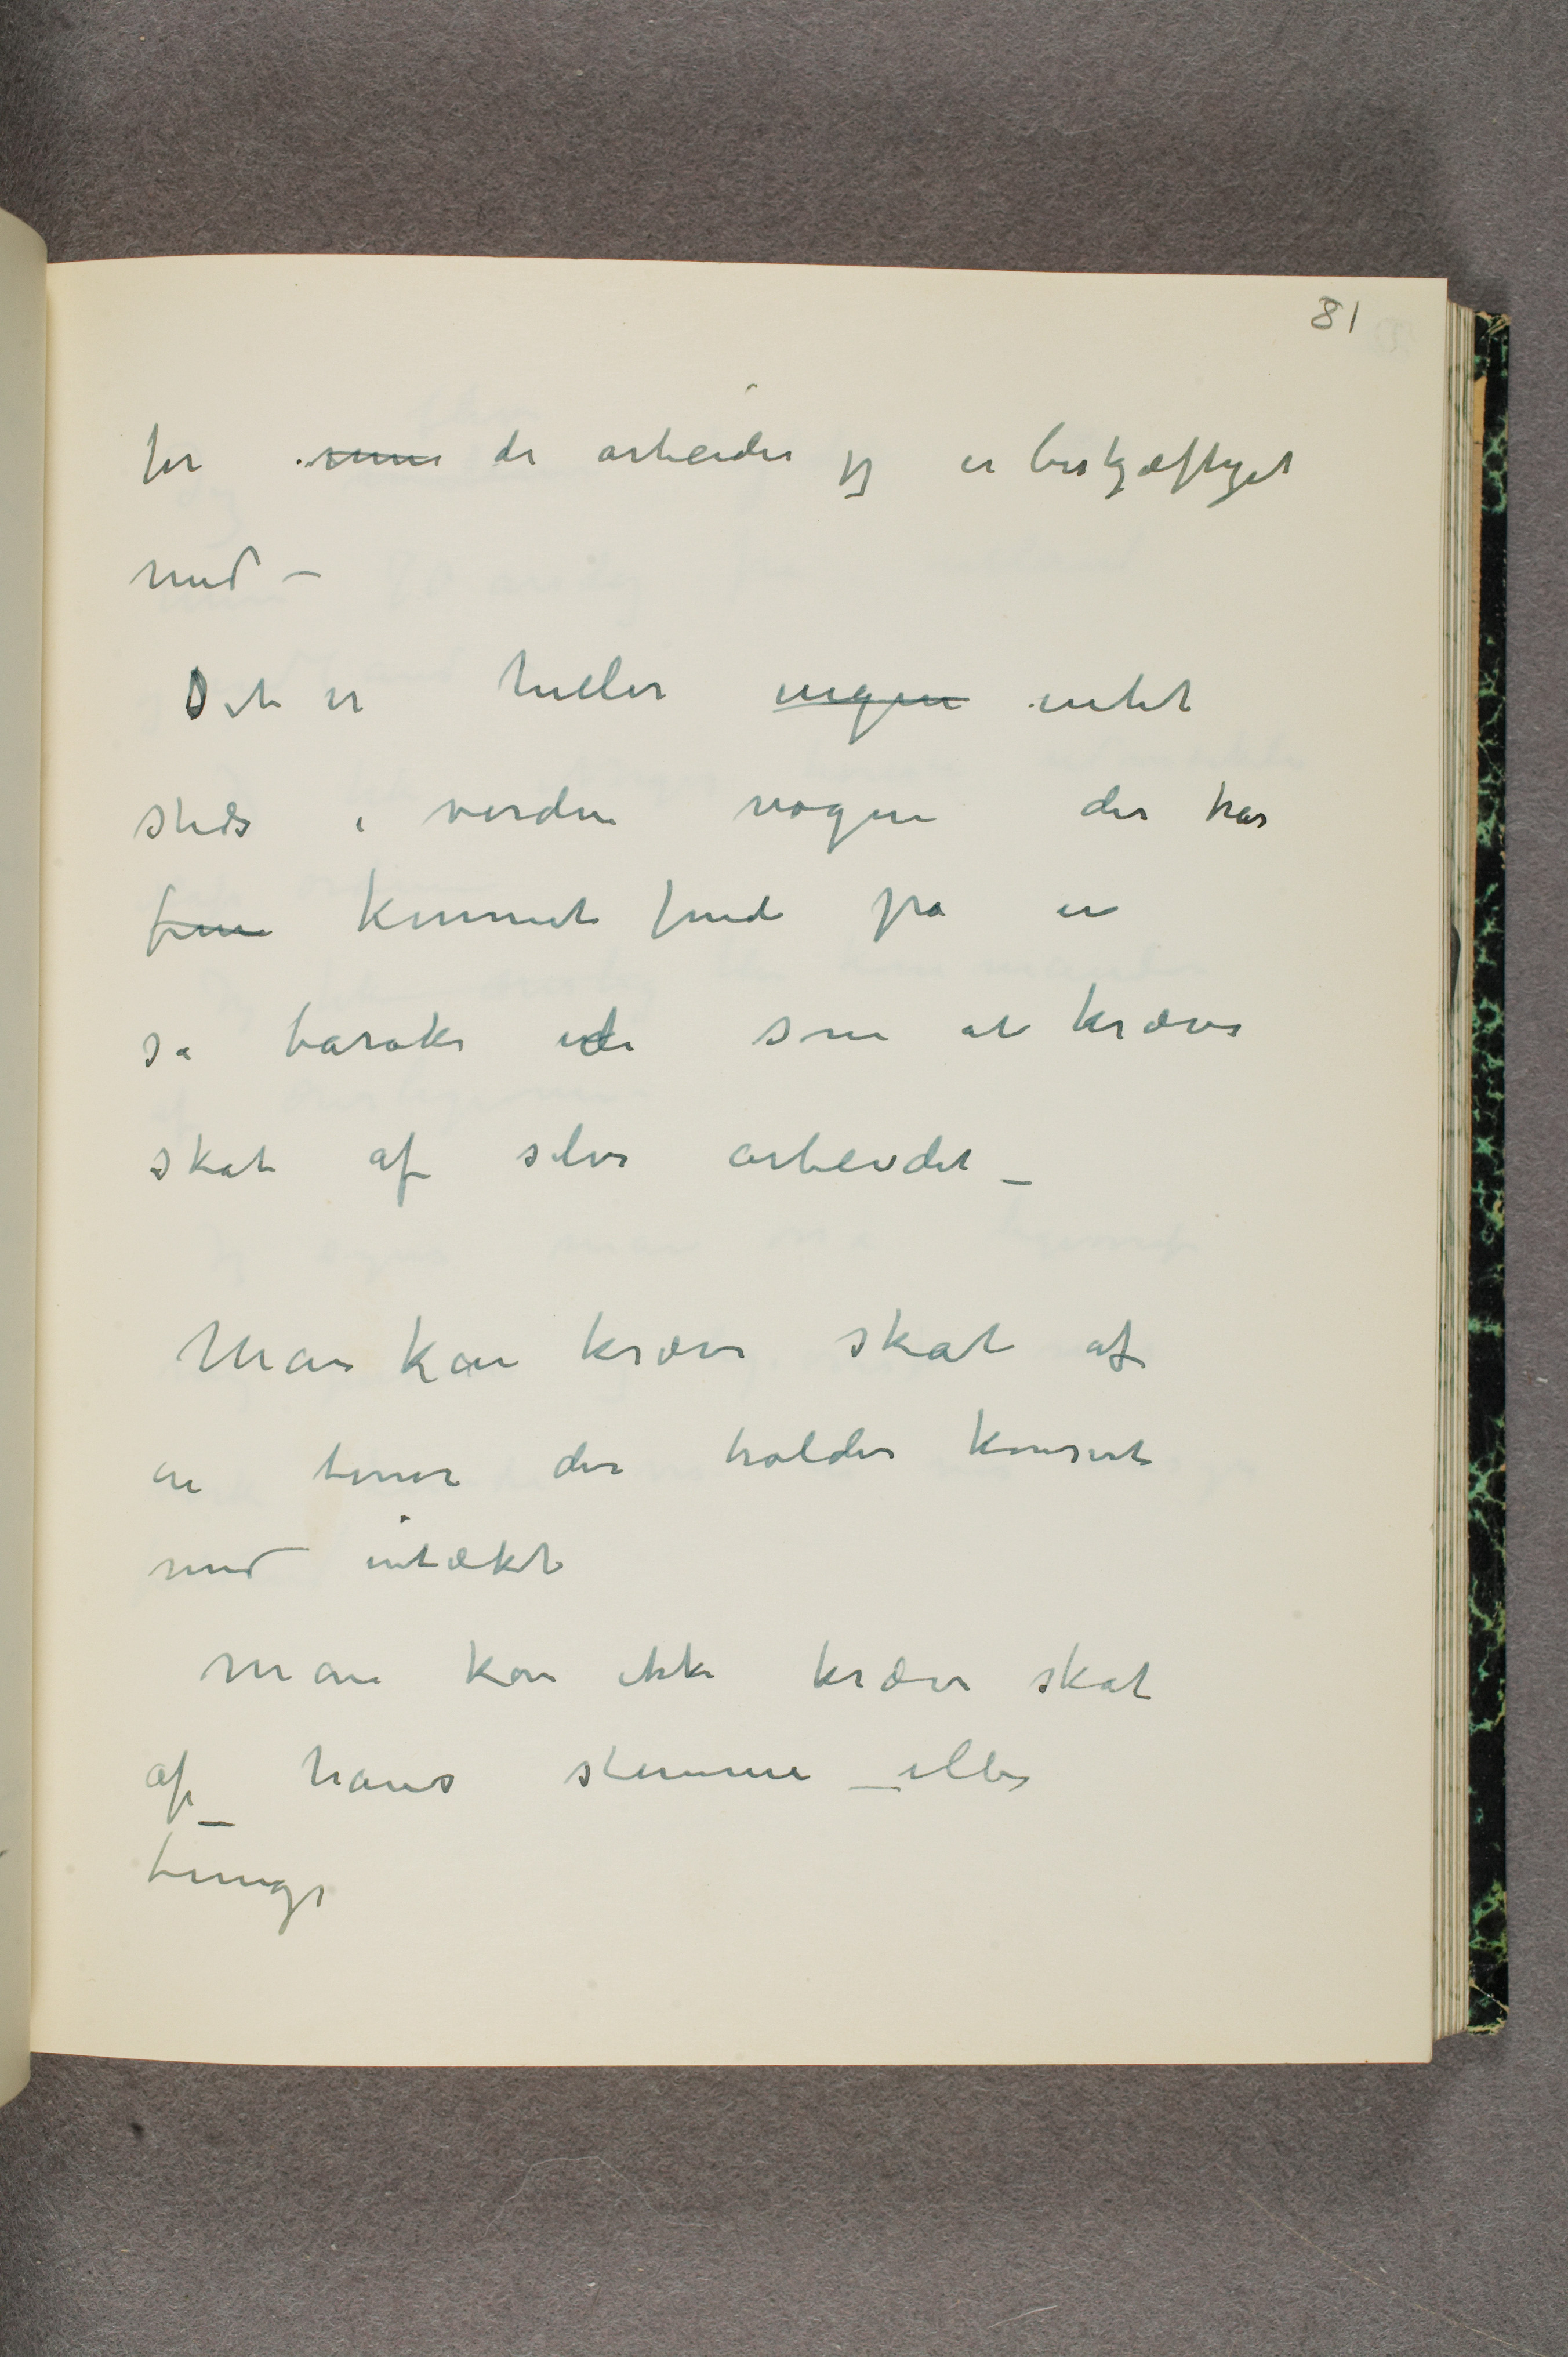 81
for mine de arbeider jeg er beskjæftiget
med –
Det er heller ingen intet
steds i verden nogen der har
kunnet finde på en
så barok ide som at kræve
skat af selve arbeidet –
Man kan kræve skat af
en tenor der holder konsert
med intækt
Man kan ikke kræve skat
af hans stemme – eller
lunge